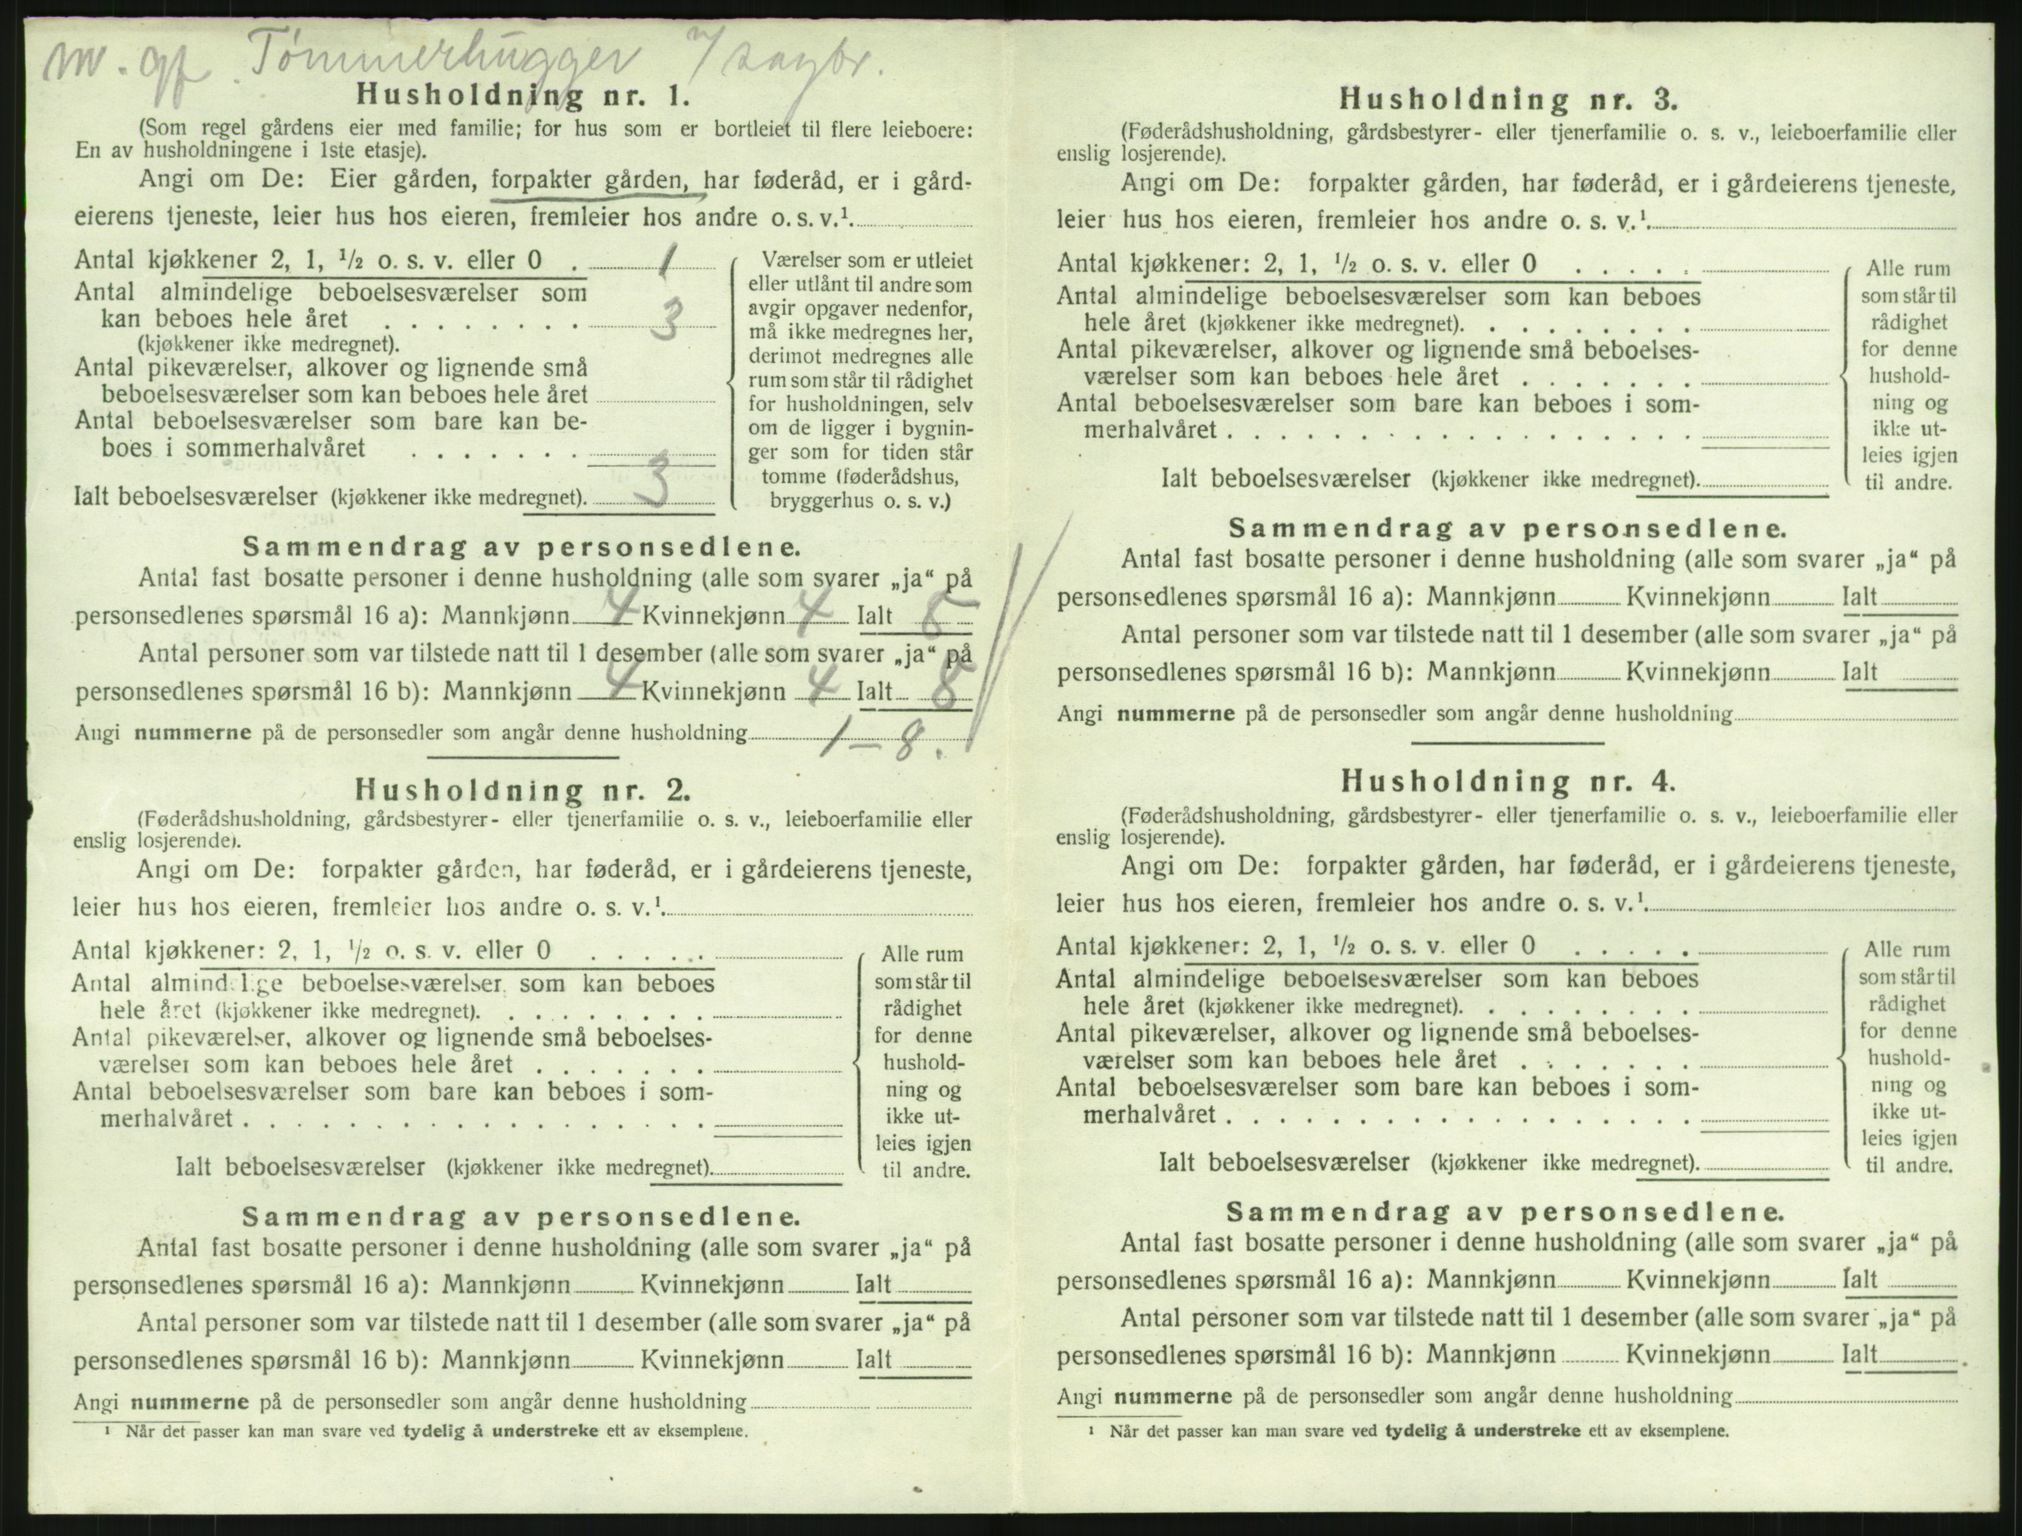 m. gf. Tømmerhugger v/ sagbr.
Husholdning nr. 1.
(Som regel gårdens eier med familie; for hus som er bortleiet til flere leieboere:
En av husholdningene i 1ste etasje).
Angi om De: Eier gården, forpakter gården, har føderåd, er i gård-
eierens tjeneste, leier hus hos eieren, fremleier hos andre o. s. v.¹.
Antal kjøkkener 2, 1, ½ o. s. v. eller 0 . 1
Antal almindelige beboelsesværelser som
kan beboes hele året . . . . . . . . 3
(kjøkkener ikke medregnet).
Antal pikeværelser, alkover og lignende små
beboelsesværelser som kan beboes hele året
Antal beboelsesværelser som bare kan be-
boes i sommerhalvåret . . . . . . .
Ialt beboelsesværelser (kjøkkener ikke medregnet). 3
Værelser som er utleiet
eller utlånt til andre som
avgir opgaver nedenfor,
må ikke medregnes her,
derimot medregnes alle
rum som står til rådighet
for husholdningen, selv
om de ligger i bygnin-
ger som for tiden står
tomme (føderådshus,
bryggerhus o. s. v.)
Sammendrag av personsedlene.
Antal fast bosatte personer i denne husholdning (alle som svarer „ja“ på
personsedlenes spørsmål 16 a): Mannkjønn 4 Kvinnekjønn 4 Ialt 8
Antal personer som var tilstede natt til 1 desember (alle som svarer „ja“ på
personsedlenes spørsmål 16 b): Mannkjønn 4 Kvinnekjønn 4 Ialt 8
Angi nummerne på de personsedler som angår denne husholdning 1-8.
Husholdning nr. 2.
(Føderådshusholdning, gårdsbestyrer- eller tjenerfamilie o. s. v., leieboerfamilie eller
enslig losjerende).
Angi om De: forpakter gården, har føderåd, er i gårdeierens tjeneste,
leier hus hos eieren, fremleier hos andre o. s. v.¹.
Antal kjøkkener: 2, 1, ½ o. s. v. eller 0 . . . . .
Antal almindelige beboelsesværelser som kan beboes
hele året (kjøkkener ikke medregnet). . . . . . . . .
Antal pikeværelser, alkover og lignende små beboelses-
værelser som kan beboes hele året . . . . . . .
Antal beboelsesværelser som bare kan beboes i som-
merhalvåret . . . . . . . . . . . . . . . . .
Ialt beboelsesværelser (kjøkkener ikke medregnet).
Alle rum
som står til
rådighet
for denne
hushold-
ning og
ikke ut-
leies igjen
til andre.
Sammendrag av personsedlene.
Antal fast bosatte personer i denne husholdning (alle som svarer „ja“ på
personsedlenes spørsmål 16 a): Mannkjønn Kvinnekjønn Ialt
Antal personer som var tilstede natt til 1 desember (alle som svarer „ja“ på
personsedlenes spørsmål 16 b): Mannkjønn Kvinnekjønn Ialt
Angi nummerne på de personsedler som angår denne husholdning
¹ Når det passer kan man svare ved tydelig å understreke ett av eksemplene.
Husholdning nr. 3.
(Føderådshusholdning, gårdsbestyrer- eller tjenerfamilie o. s. v., leieboerfamilie eller
enslig losjerende).
Angi om De: forpakter gården, har føderåd, er i gårdeierens tjeneste,
leier hus hos eieren, fremleier hos andre o. s. v.¹.
Antal kjøkkener: 2, 1, ½ o. s. v. eller 0 . . . . .
Antal almindelige beboelsesværelser som kan beboes
hele året (kjøkkener ikke medregnet). . . . . . . . .
Antal pikeværelser, alkover og lignende små beboelses-
værelser som kan beboes hele året . . . . . . .
Antal beboelsesværelser som bare kan beboes i som-
merhalvåret . . . . . . . . . . . . . . . . .
Ialt beboelsesværelser (kjøkkener ikke medregnet).
Alle rum
som står til
rådighet
for denne
hushold-
ning og
ikke ut-
leies igjen
til andre.
Sammendrag av personsedlene.
Antal fast bosatte personer i denne husholdning (alle som svarer „ja“ på
personsedlenes spørsmål 16 a): Mannkjønn Kvinnekjønn Ialt
Antal personer som var tilstede natt til 1 desember (alle som svarer „ja“ på
personsedlenes spørsmål 16 b): Mannkjønn Kvinnekjønn Ialt
Angi nummerne på de personsedler som angår denne husholdning
Husholdning nr. 4.
(Føderådshusholdning, gårdsbestyrer- eller tjenerfamilie o. s. v., leieboerfamilie eller
enslig losjerende).
Angi om De: forpakter gården, har føderåd, er i gårdeierens tjeneste,
leier hus hos eieren, fremleier hos andre o. s. v.¹.
Antal kjøkkener: 2, 1, ½ o. s. v. eller 0 . . . . .
Antal almindelige beboelsesværelser som kan beboes
hele året (kjøkkener ikke medregnet). . . . . . . . .
Antal pikeværelser, alkover og lignende små beboelses-
værelser som kan beboes hele året . . . . . . .
Antal beboelsesværelser som bare kan beboes i som-
merhalvåret . . . . . . . . . . . . . . . . .
Ialt beboelsesværelser (kjøkkener ikke medregnet).
Alle rum
som står til
rådighet
for denne
hushold-
ning og
ikke ut-
leies igjen
til andre.
Sammendrag av personsedlene.
Antal fast bosatte personer i denne husholdning (alle som svarer „ja“ på
personsedlenes spørsmål 16 a): Mannkjønn Kvinnekjønn Ialt
Antal personer som var tilstede natt til 1 desember (alle som svarer „ja“ på
personsedlenes spørsmål 16 b): Mannkjønn Kvinnekjønn Ialt
Angi nummerne på de personsedler som angår denne husholdning
¹ Når det passer kan man svare ved tydelig å understreke ett av eksemplene.